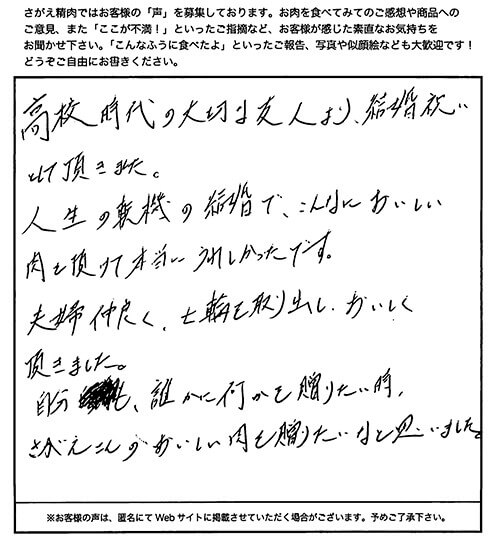 さがえ精肉ではお客様の「声」を募集しております。お肉を食べてみてのご感想や商品への
ご意見、また「ここが不満！」といったご指摘など、お客様が感じた素直なお気持ちを
お聞かせ下さい。「こんなふうに食べたよ」といったご報告、写真や似顔絵なども大歓迎です！
どうぞご自由にお書きください。
高校時代の大切な友人より、結婚祝い
として頂きました。
人生の転機の結婚で、こんなにおいしい
肉を頂けて本当にうれしかったです。
夫婦仲良く、七輪を取り出し、おいしく
頂きました。
自分も、誰かに何かを贈りたい時、
さがえさんのおいしい肉を贈りたいなと思いました。
※お客様の声は、匿名にてWebサイトに掲載させていただく場合がございます。予めご了承下さい。